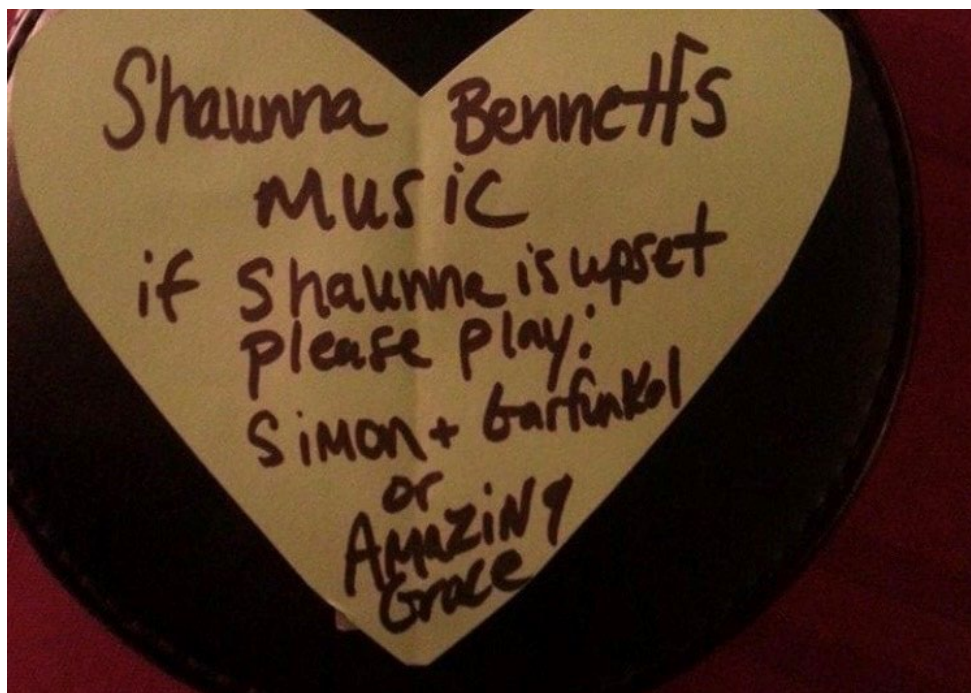 Shaunna Bennett's
MUSIC
if Shaunna is upset
please play:
SIMON + Garfunkel
or
AMAZING
Grace